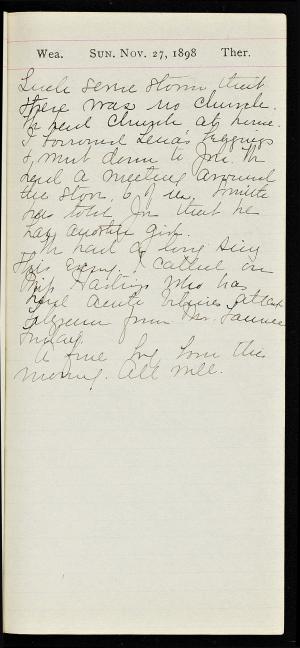 Wea. SUN. NOV. 27, 1898 Ther.
Such severe storm that
there was no church.
We had Church at home.
I borrowed Lena's leggings
& went down to Jno. We
had a meeting around
the stove, 6 of us.
was told Jno that he
has another girl.
We had a long sing
this Eveng. I called on
Hastings who has
had acute attack
Telegram from Mr.
A fine from this
morning. All well.